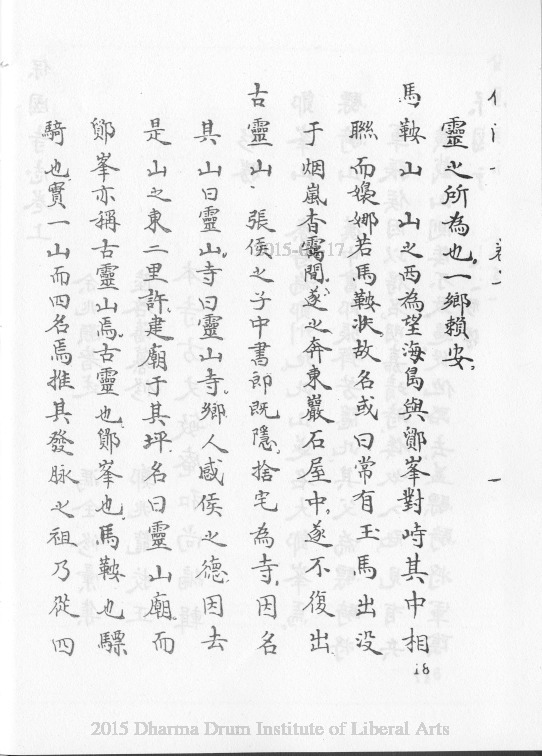 靈之所為也。一鄉賴安。
馬鞍山 山之西為望海島與鄮峯對峙其中相
聮而嫋娜若馬鞍狀故名或曰常有玉馬出没
于烟嵐杳靄間。遂之奔東巖石屋中。遂不復出
古靈山 張侯之子中書郎既隱。捨宅為寺。因名
其山曰靈山。寺曰靈山寺。鄉人感侯之德。因去
是山之東二里許建廟于其坪。名曰靈山廟。而
鄮峯亦稱古靈山焉。古靈也。鄮峯也。馬鞍也驃
騎也實一山而四名焉推其發脉之祖乃從四
18
2015 Dharma Drum Institute of Liberal Arts